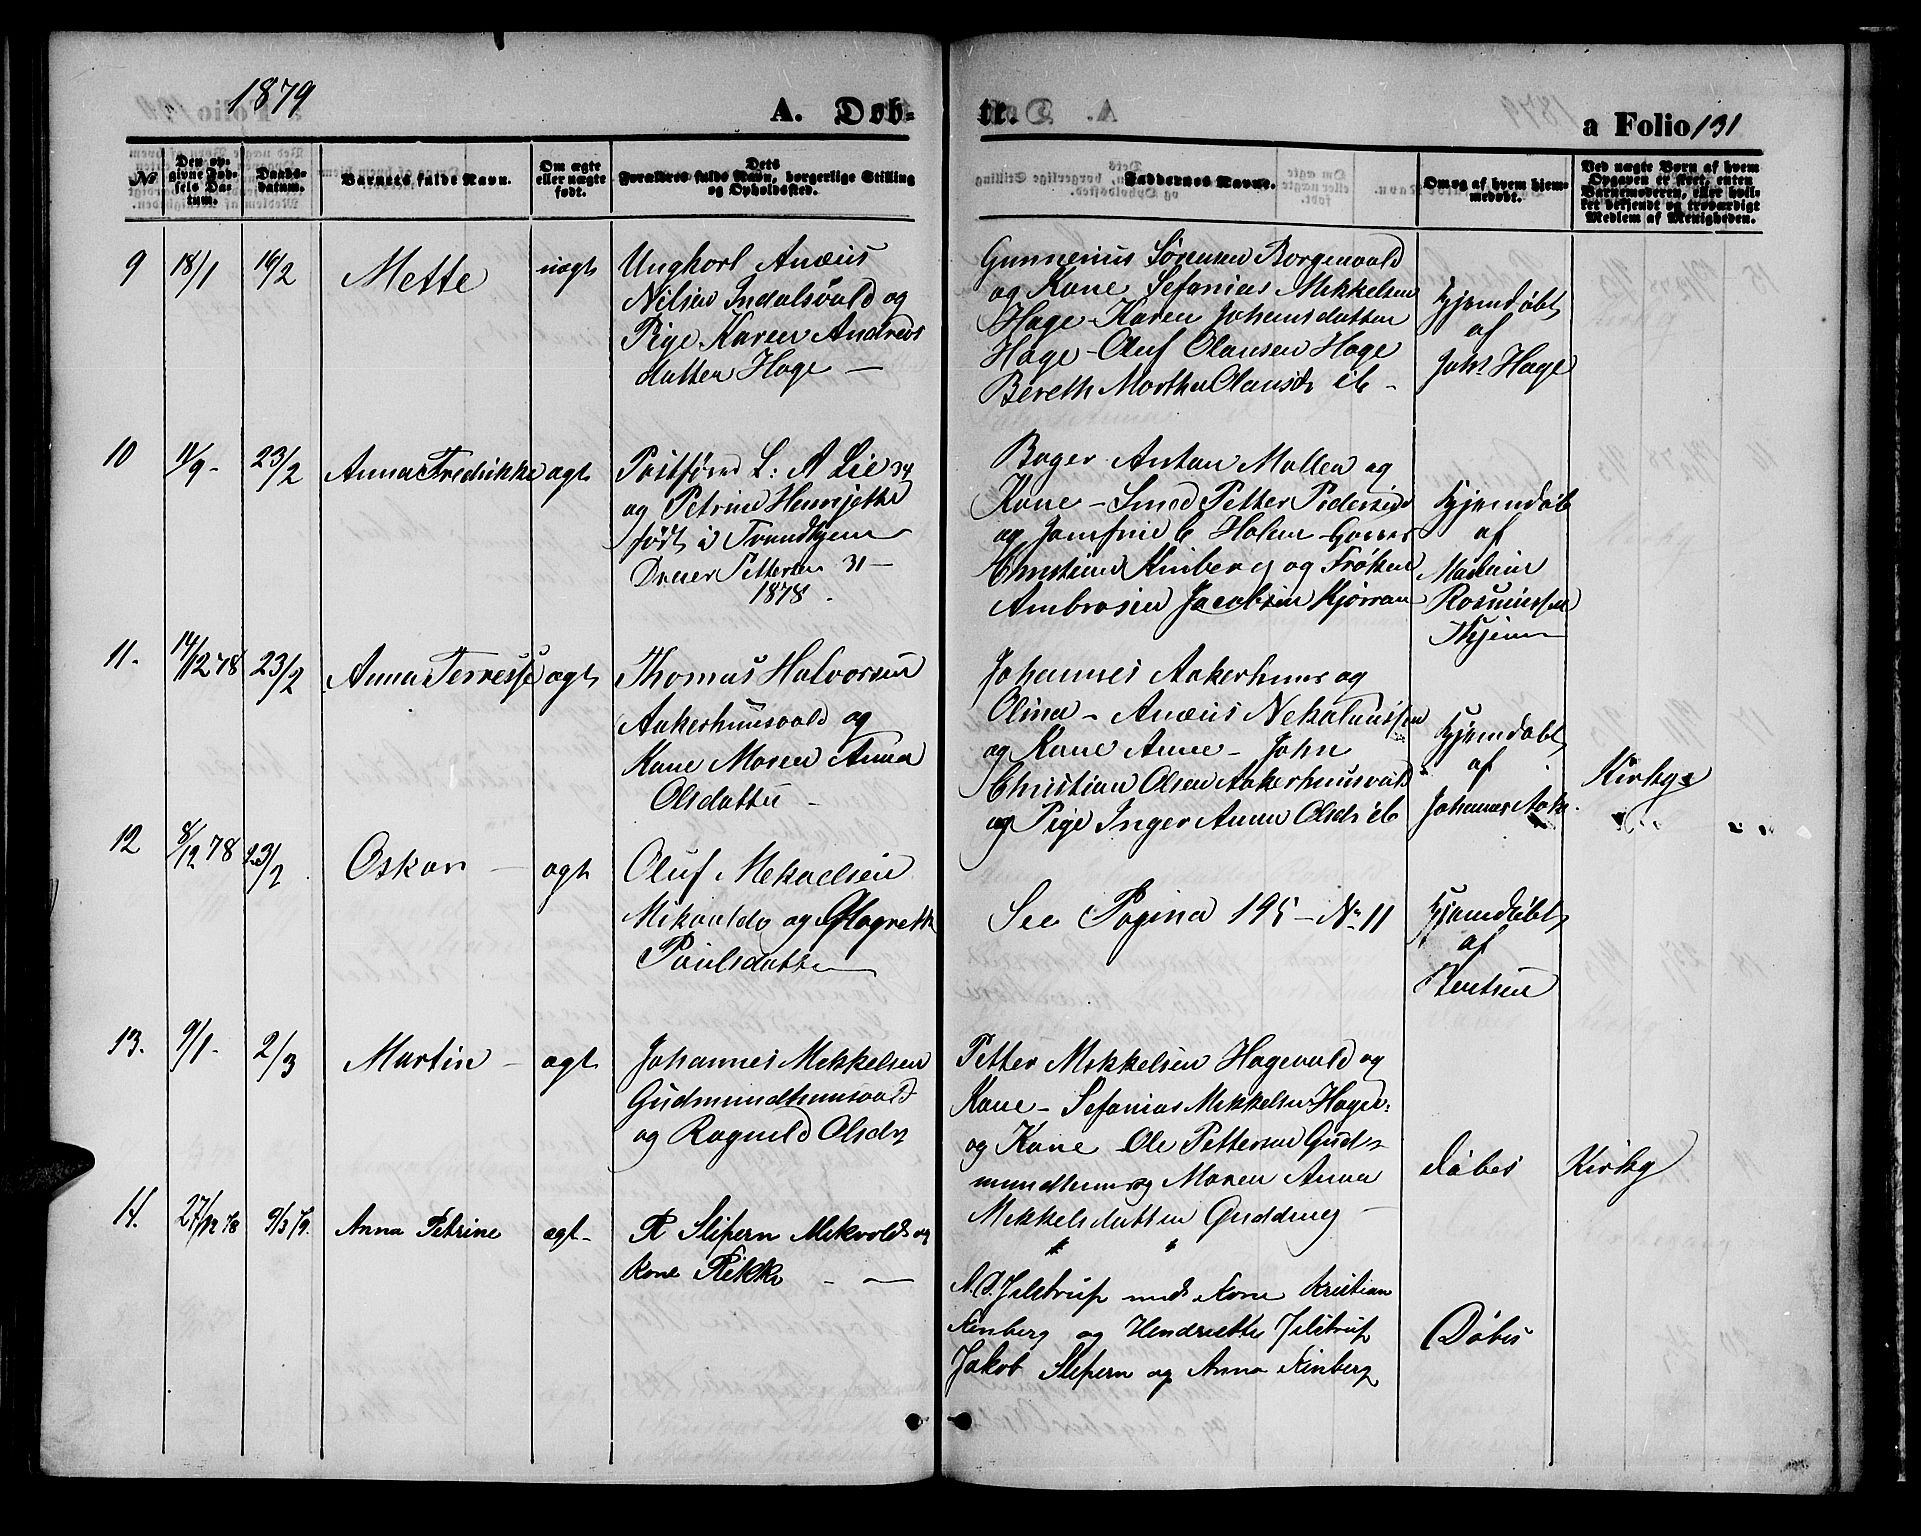 1879
A. Døb-
te.
a Folio 131
№
Den op-
givne Fød-
sels Da-
tum.
Daabs-
datum.
Barnets fulde Navn.
Om ægte
eller uægte
født.
Dets
Forældres fulde Navn, borgerlige Stilling
og Opholdssted.
Faddernes Navne.
Om og af hvem hjem-
medøbt.
Ved uægte Børn af hvem
Opgaven er skeet, enten
Barnemoderen, eller hvil-
ket bekjendt og troværdigt
Medlem af Menigheden.
9 18/1 16/2 Mette uægt
Ungkarl Anæus
Nilsen Indalsvald og
Pige Karen Andreas
datten Hage —
Gunnerius Sørensen Borgenvald
og Kone Sefanias Mekkelsen
Hage - Karen Johansdatten
Hage - Oluf Olausen Hage
Bereth Martha Olausdr ib -
Hjemdøbt
af
Johs Hage
10 11/9 - 23/2 Anna Fredrikke ægt
Postfører L: A Lie 34
og Petrine Henrjette
født i Trondhjem
Petersen 31 -
1878.
Bager Anton Mollen og
Kone - Smed Petter Pedersen
og C Holm -
Christian Kinberg og Frøken
Ambrosia Jacobsen Kjørran
Hjemdøbt
af
Madam
Rasmussen
Thjem
11. 14/12 78 23/2 Anna Terresse ægt
Thomas Halvorsen
Aakerhuusvald og
Kone Maren Anna
Olsdatter -
Johannes Aakerhuus og
Olina - Anæus Nekolaussen
og Kone Anne - John
Christian Olsen Aakerhuusvald
og Pige Inger Anna Olsdr ib
Hjemdøbt
af
Johannes Aak.
Kirkg.
12 8/12 78 23/2 Oskar - ægt
Oluf Mekaelsen
Mekvald og Magrethe
Paulsdatter
See Pagina 195 - Nr 11
Hjemdøbt
af
13. 9/1 - 2/3 Martin - ægt
Johannes Mekkelsen
Gudmundhuusvald
og Ragnild Olsdr
Petter Mekkelsen Hagevald og
Kone - Sefanias Mekkelsen Hage
og Kone Ole Pettersen Gud-
mundhuus og Maren Anna
Mekkelsdatten
døbes
Kirkg
14. 27/12 78 9/3 79. Anna Petrine ægt -
R Slipern Mekvold og
Kone Rikke - —
Jelstrup med Kone Kristian
Kinberg og Hendriette Jelstrup
Jakob Slipern og Anna Kinberg
Døbes